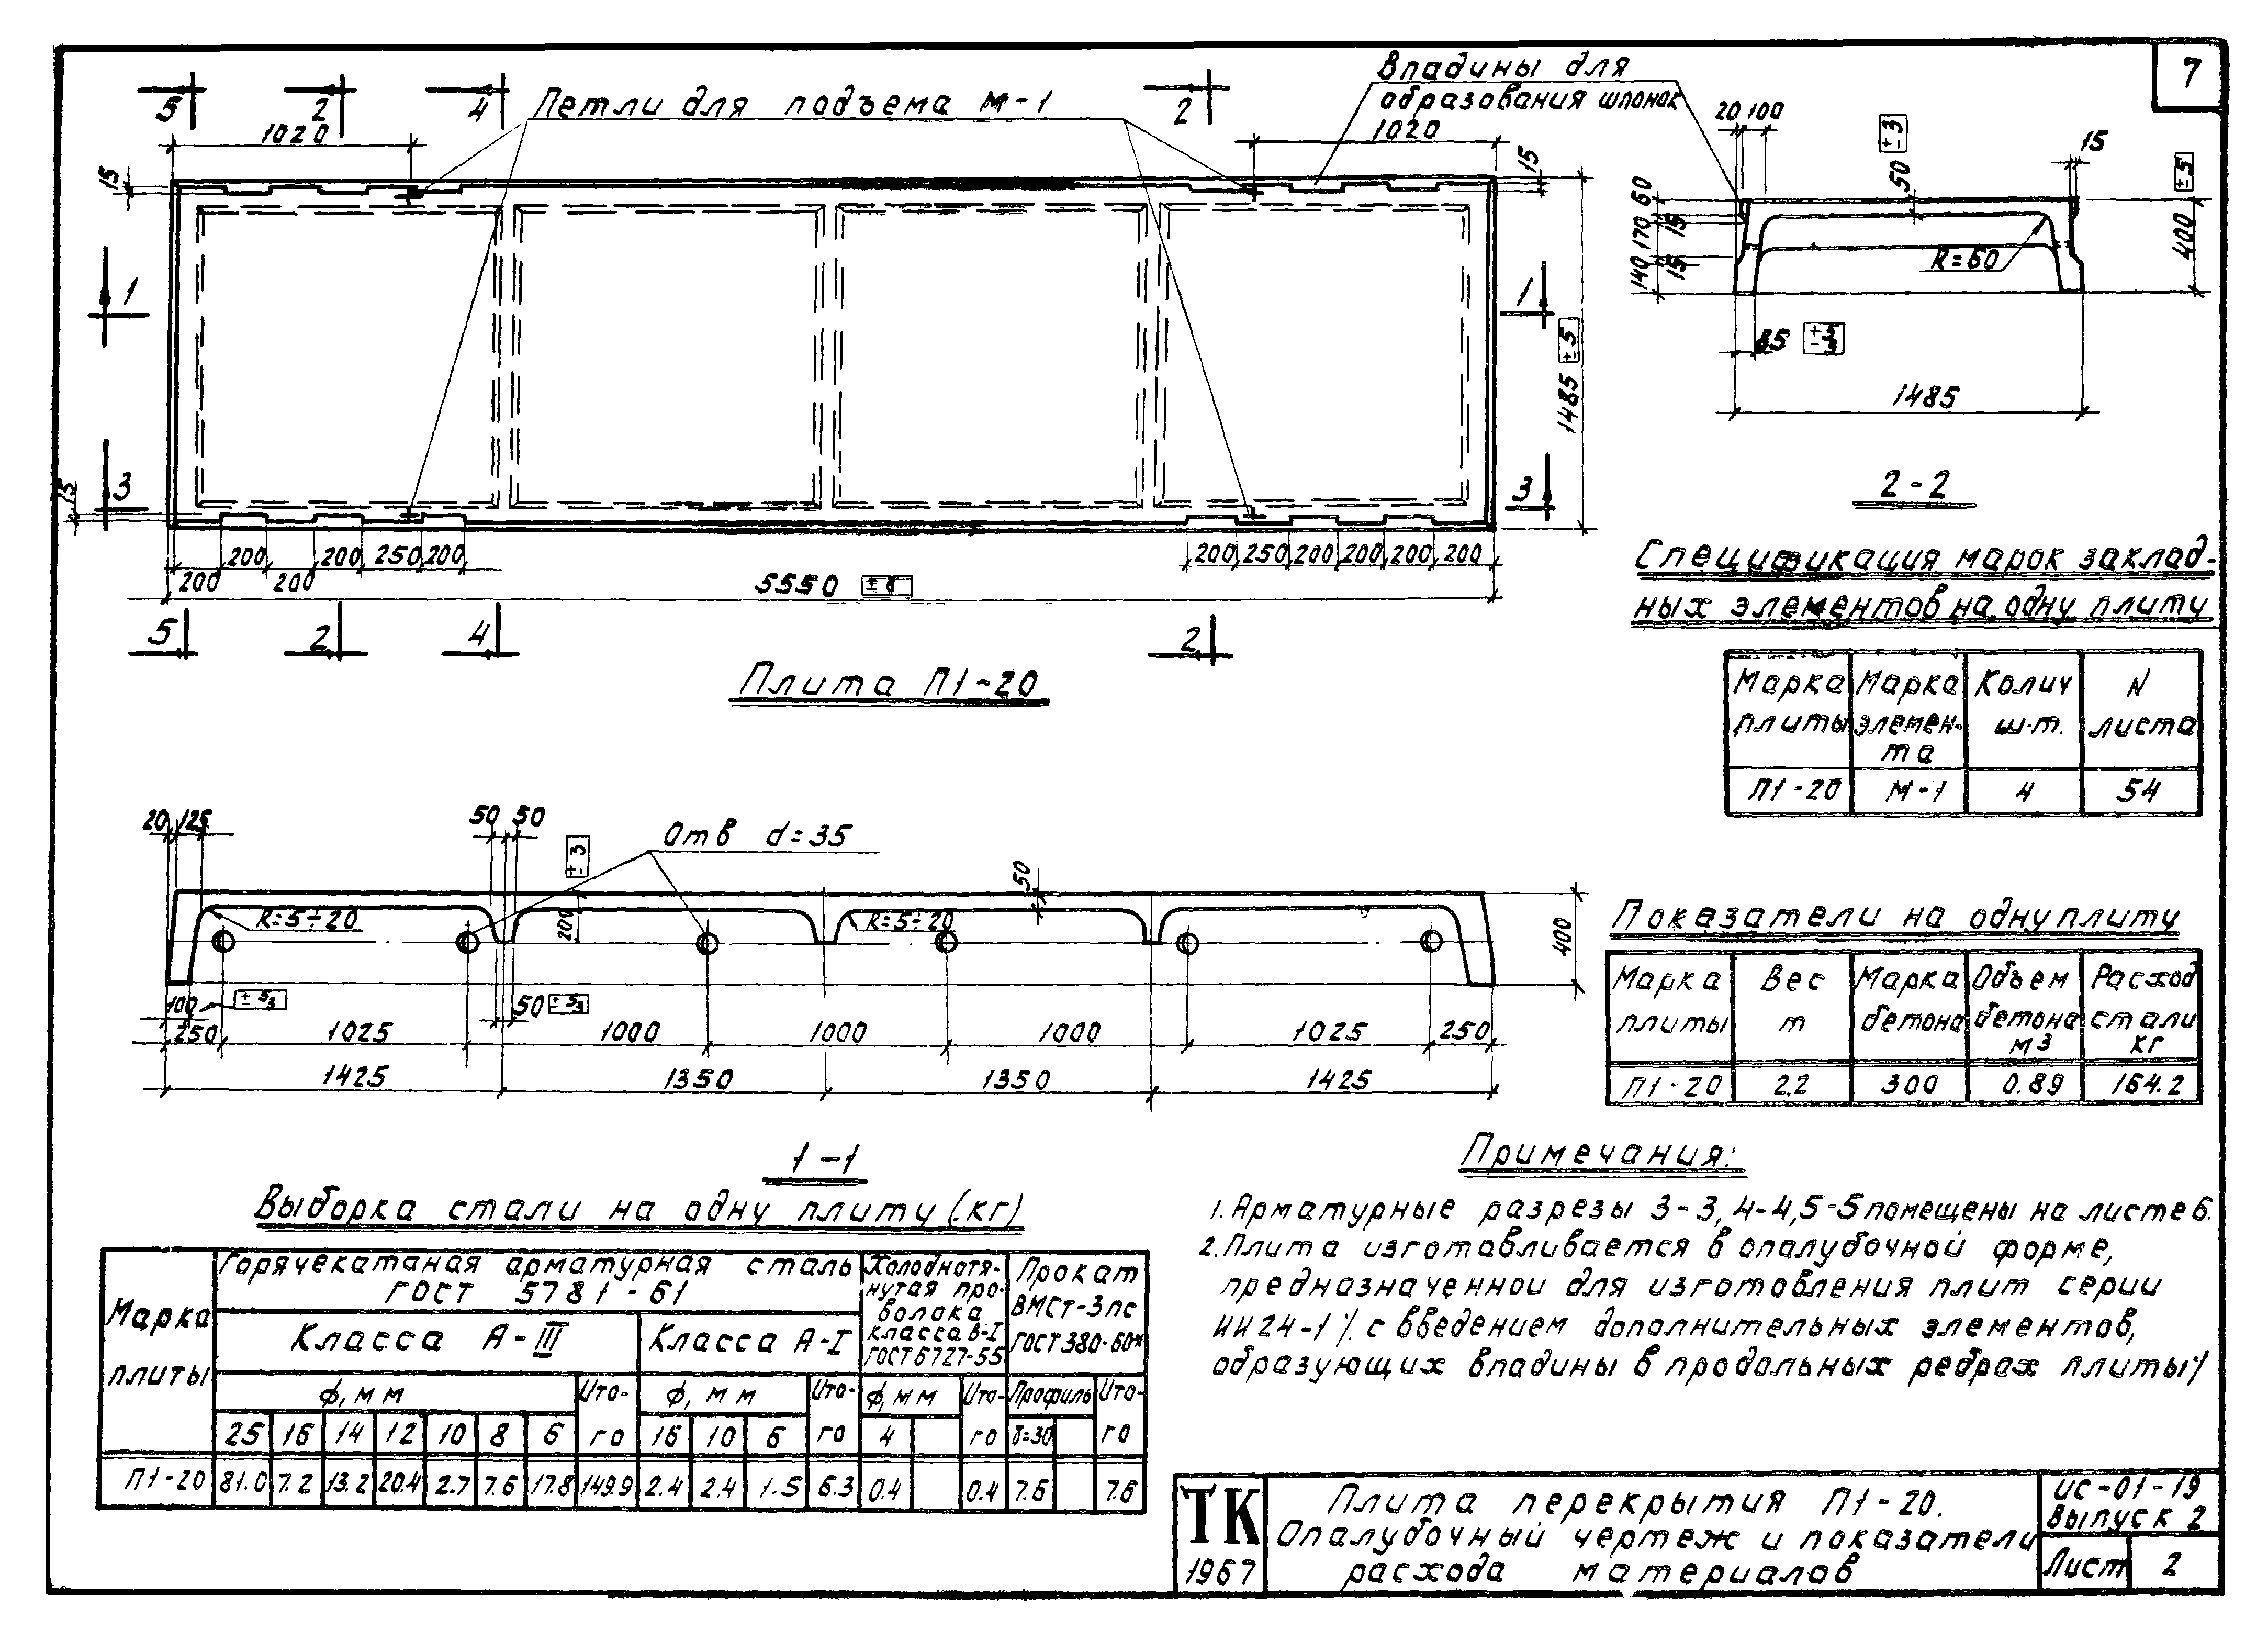 7
5
2
4
Петли для подъема М-1
2
Впадины для
образования шпонок
1020
1020
15
15
1
1
3
3
15
1485 ±5
200 200 250 200
200 200
200 250 200 200 200 200
5550 ±8
5
2
4
2
Плита П1-20
20 100
50 ±3
15
±5
60
170
15
140
15
400
R=60
85 +5 -3
1485
2-2
Спецификация марок заклад-
ных элементов на одну плиту
Марка плиты Марка элемен-та Колич шт. N листа
П1-20 М-1 4 54
20 125
50 50
±3
Отв d=35
50
R=5÷20
200
R=5÷20
400
100 +5 -3
50 +5 -3
250 1025 1000 1000 1000 1025 250
1425 1350 1350 1425
1-1
Показатели на одну плиту
Марка плиты Вес т Марка бетона Объем бетона м3 Расход стали кг
П1-20 2,2 300 0.89 164.2
Выборка стали на одну плиту (кг)
Марка плиты
Горячекатаная арматурная сталь
ГОСТ 5781-61
Холоднотя-
нутая про-
волока
класса В-I
ГОСТ 6727-55
Прокат
ВМСт-3пс
ГОСТ 380-60*
Класса А-III Класса А-I
ϕ, мм Ито-го ϕ, мм Ито-го ϕ, мм Ито-го Профиль Ито-го
25 16 14 12 10 8 6 16 10 6 4 δ=30
П1-20 81.0 7.2 13.2 20.4 2.7 7.6 17.8 149.9 2.4 2.4 1.5 6.3 0.4 0.4 7.6 7.6
Примечания:
1. Арматурные разрезы 3-3, 4-4, 5-5 помещены на листе 6.
2. Плита изготавливается в опалубочной форме,
предназначенной для изготовления плит серии
ИИ24-1 /с введением дополнительных элементов,
образующих впадины в продольных ребрах плиты/
ТК
1967
Плита перекрытия П1-20.
Опалубочный чертеж и показатели
расхода материалов
ИС-01-19
Выпуск 2
Лист 2